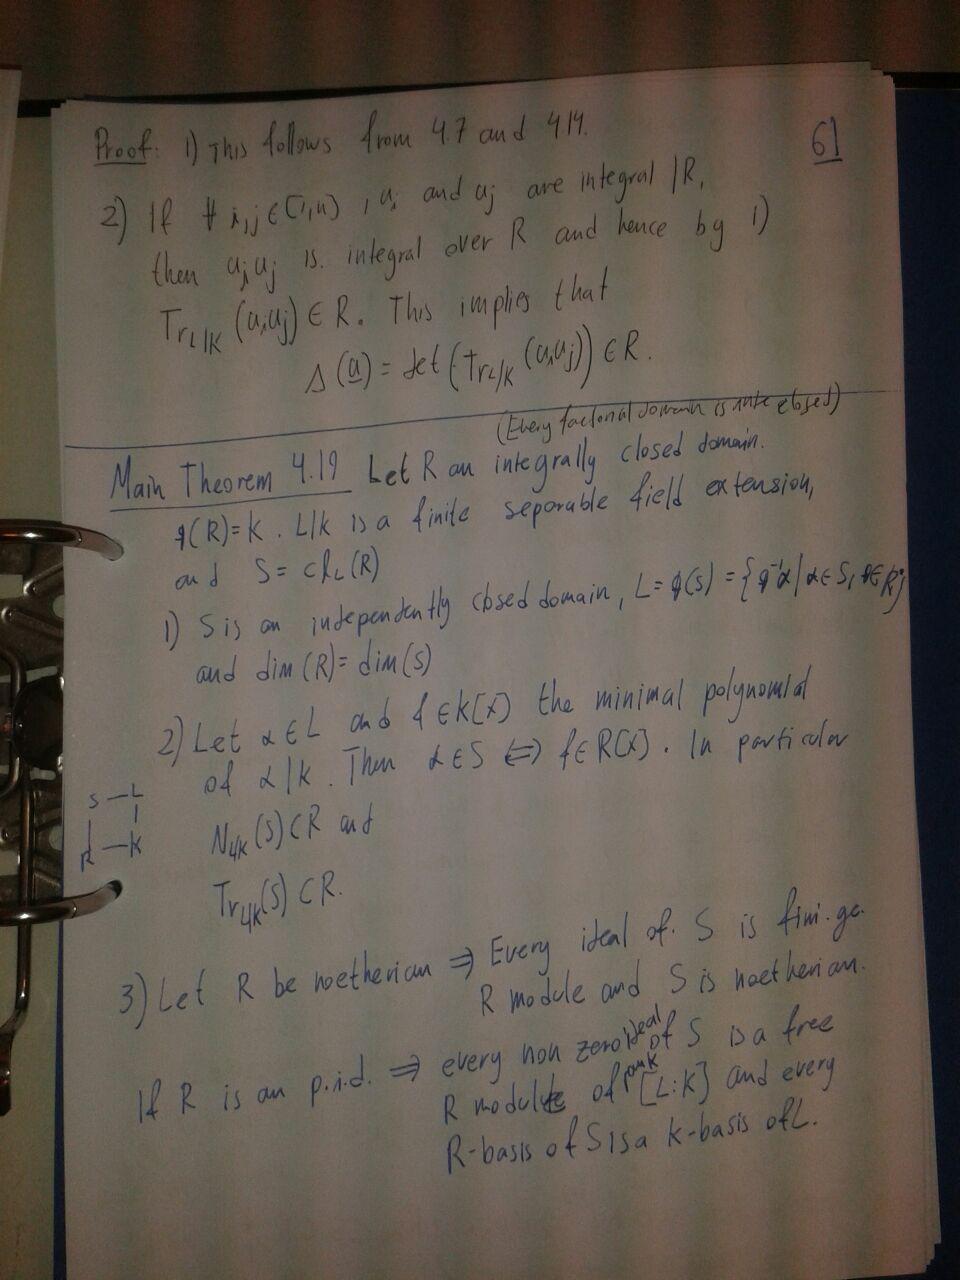 Proof: 1) This follows from 4.7 and 4.14.
61
2) If ∀ i,j ∈ [1,n], ui and uj are integral |R,
then uiuj is integral over R and hence by 1)
TrL|K (uiuj) ∈ R. This implies that
Δ(u) = det (TrL/K (uiuj)) ∈ R.
(Every factorial domain is closed)
Main Theorem 4.19 Let R an integrally closed domain.
q(R)=K. L|K is a finite separable field extension,
and S = clL(R)
1) S is an independently closed domain, L = q(S) = {q⁻¹α | α ∈ S, q ∈ R•}
and dim(R) = dim(S)
2) Let α ∈ L and f ∈ K[X] the minimal polynomial
of α|K. Then α ∈ S ⇔ f ∈ R[X]. In particular
S — L
| |
R — K
NL/K (S) ⊂ R and
TrL/K(S) ⊂ R.
3) Let R be noetherian ⇒ Every ideal of S is fini. ge.
R module and S is noetherian.
If R is an p.i.d. ⇒ every non zero ideal of S is a free
R module of rank [L:K] and every
R-basis of S is a K-basis of L.